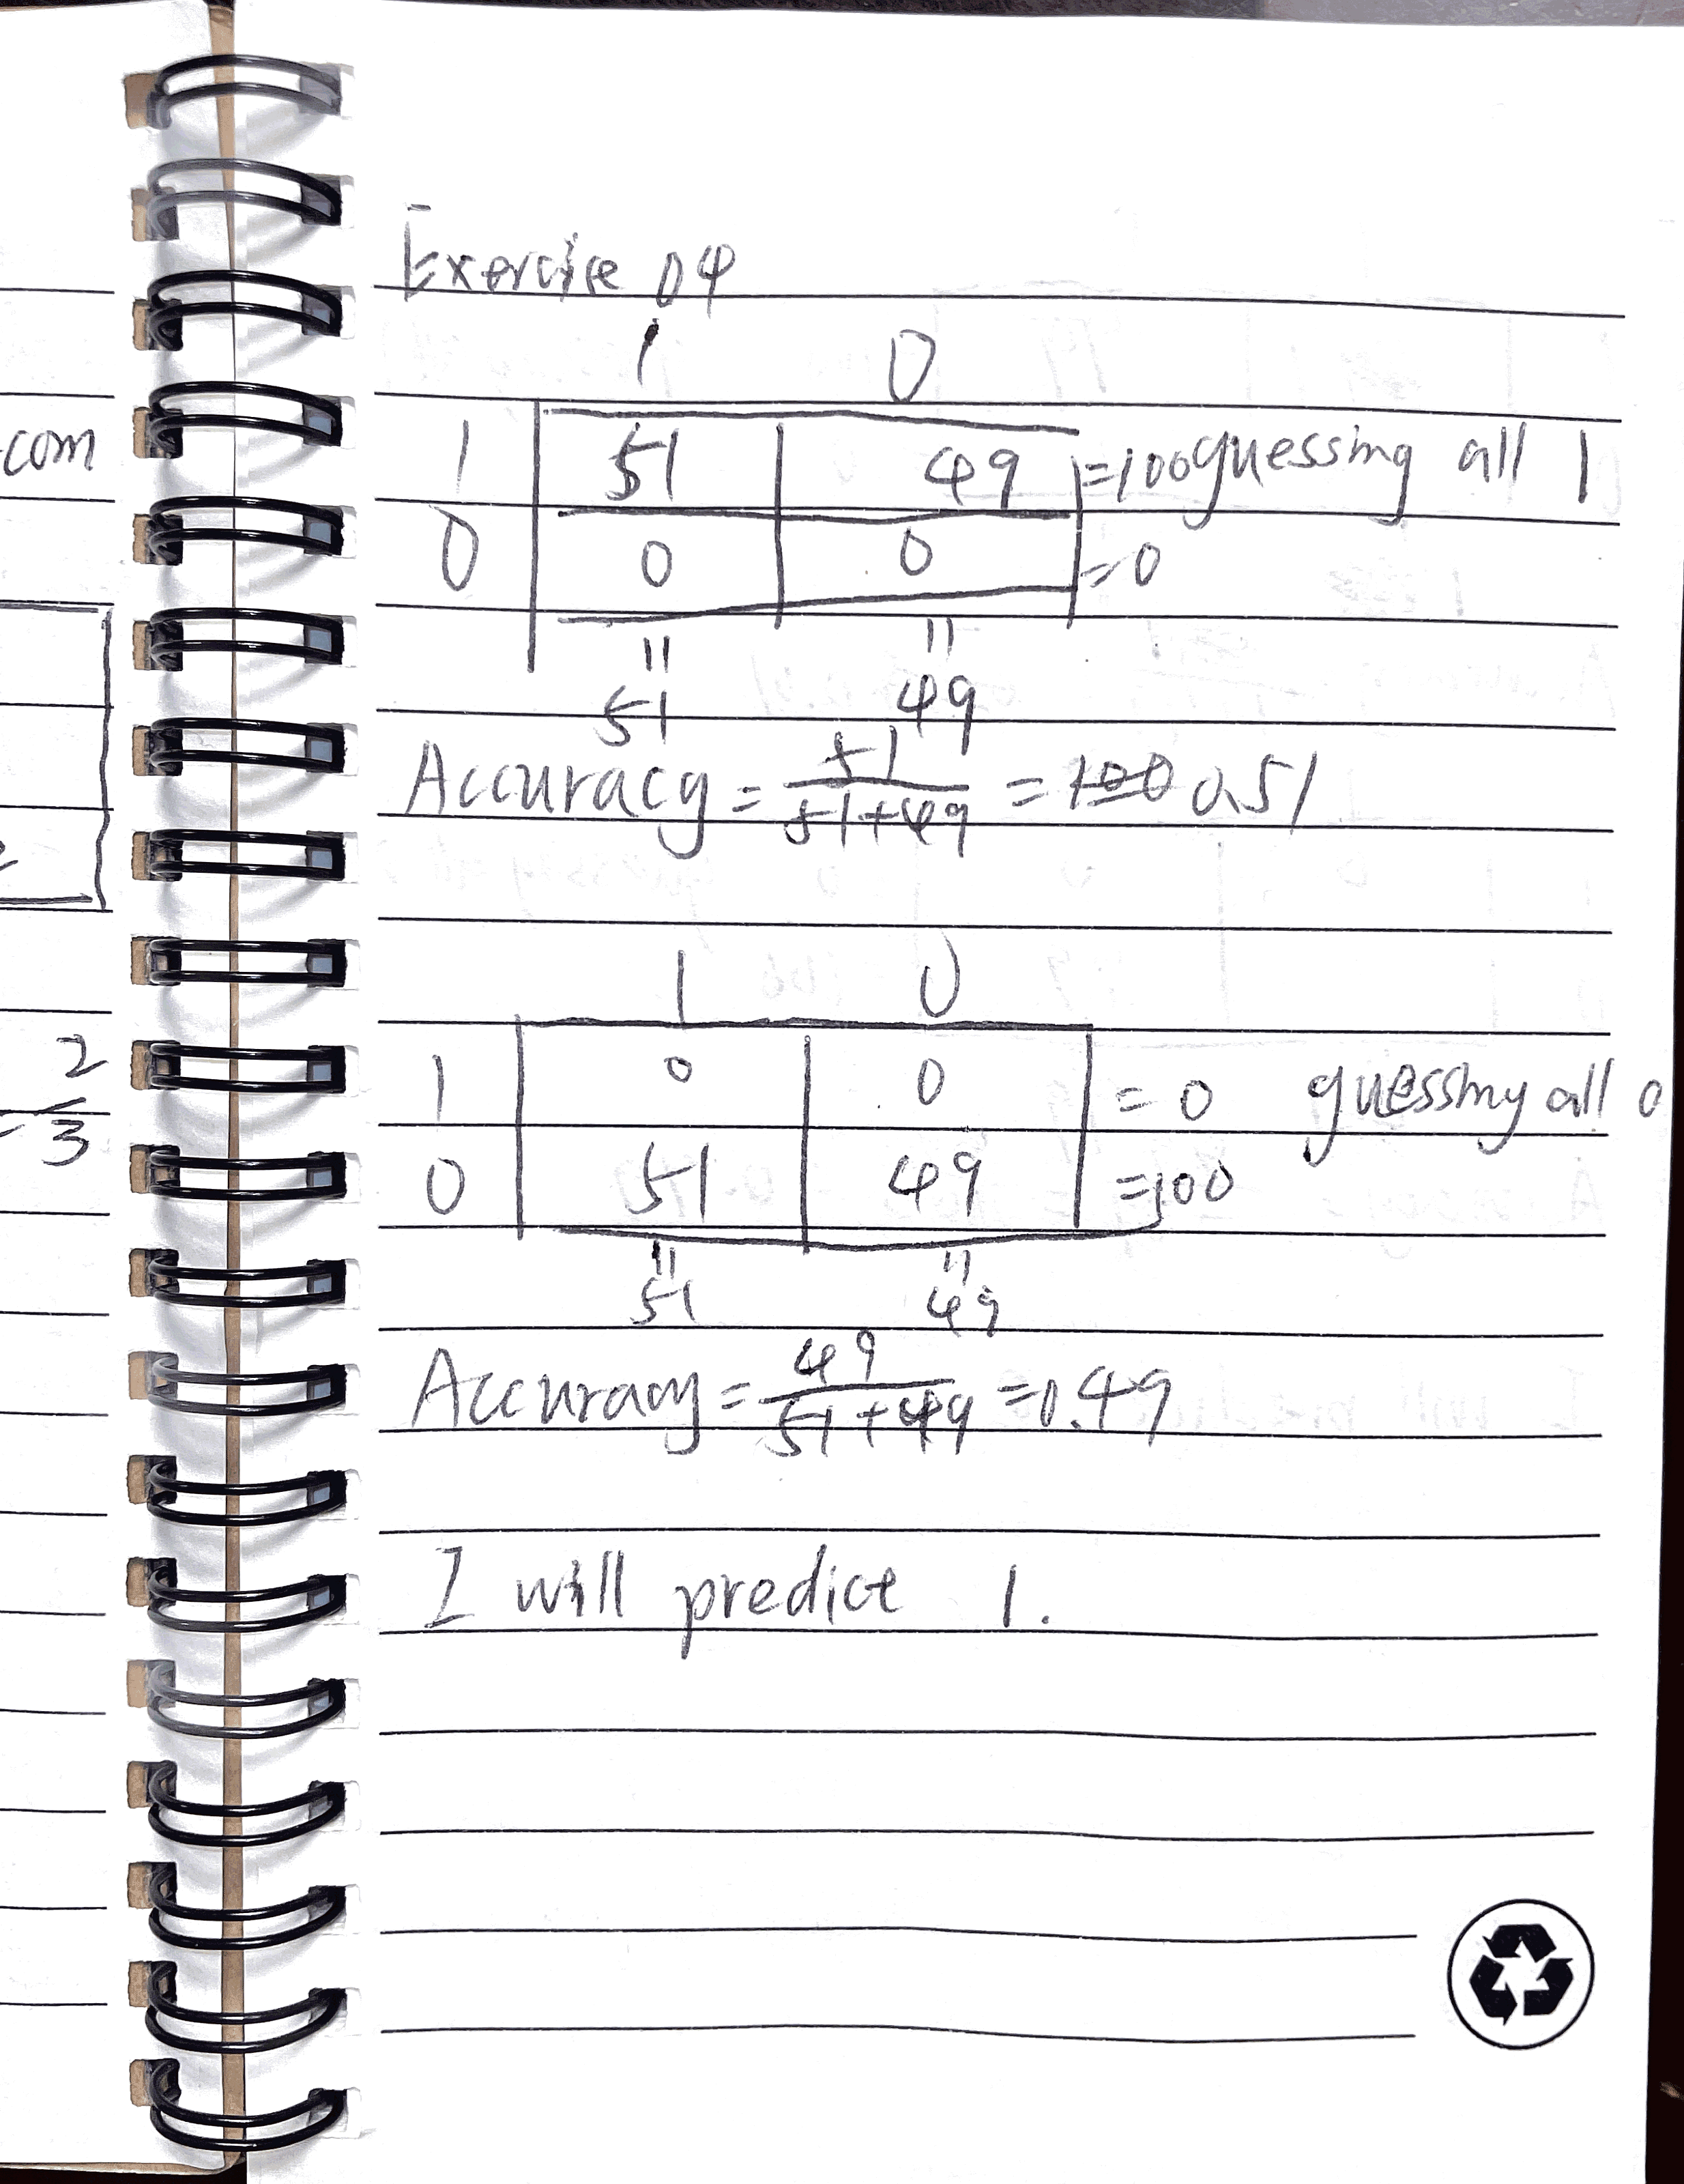 Exercise 04
1 0
1 51 49 =100 guessing all 1
0 0 0 =0
= =
51 49
Accuracy = 51/51+49 = 100 0.51
1 0
1 0 0 = 0 guessing all 0
0 51 49 =100
= =
51 49
Accuracy = 49/51+49 =0.49
I will predict 1.
com
2
3